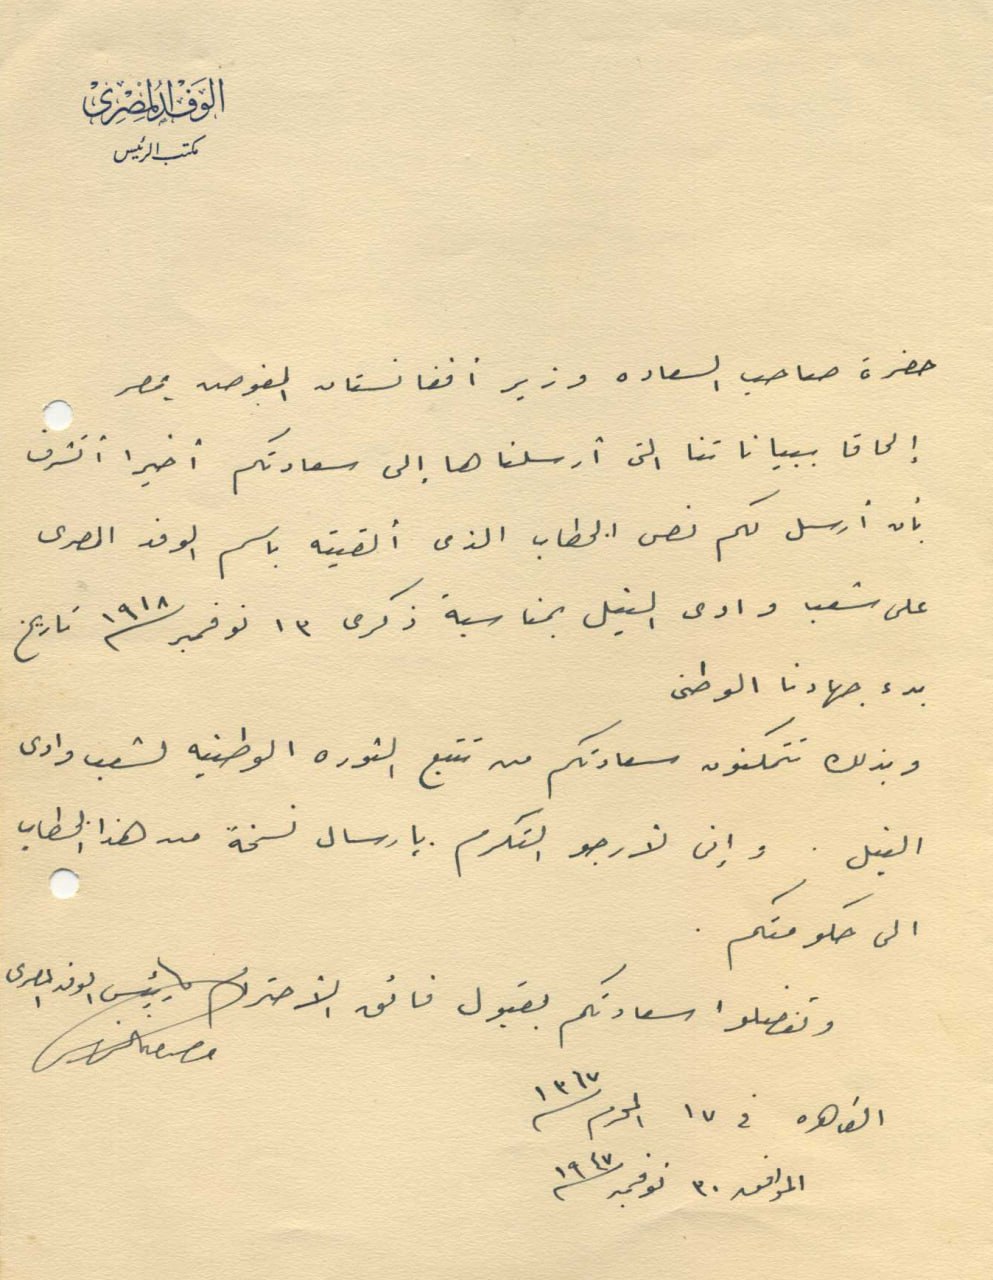 الوفد المصرى
مكتب الرئيس
حضرة صاحب السعاده وزير أفغانستان المفوض بمصر
إلحاقا ببياناتنا التى أرسلناها إلى سعادتكم أخيرا أتشرف
بأن أرسل لكم نص الخطاب الذى ألقيته باسم الوفد المصرى
على شعب وادى النيل بمناسبة ذكرى ١٣ نوفمبر ١٩١٨ تاريخ
بدء جهادنا الوطنى
وبذلك تتمكنون سعادتكم من تتبع الثوره الوطنيه لشعب وادى
النيل . وإنى لأرجو التكرم بإرسال نسخة من هذا الخطاب
الى حكومتكم .
وتفضلوا سعادتكم بقبول فائق الأحترام رئيس الوفد المصرى
مصطفى النحاس
القاهره فى ١٧ المحرم ١٣٦٧
الموافق ٣٠ نوفمبر ١٩٤٧